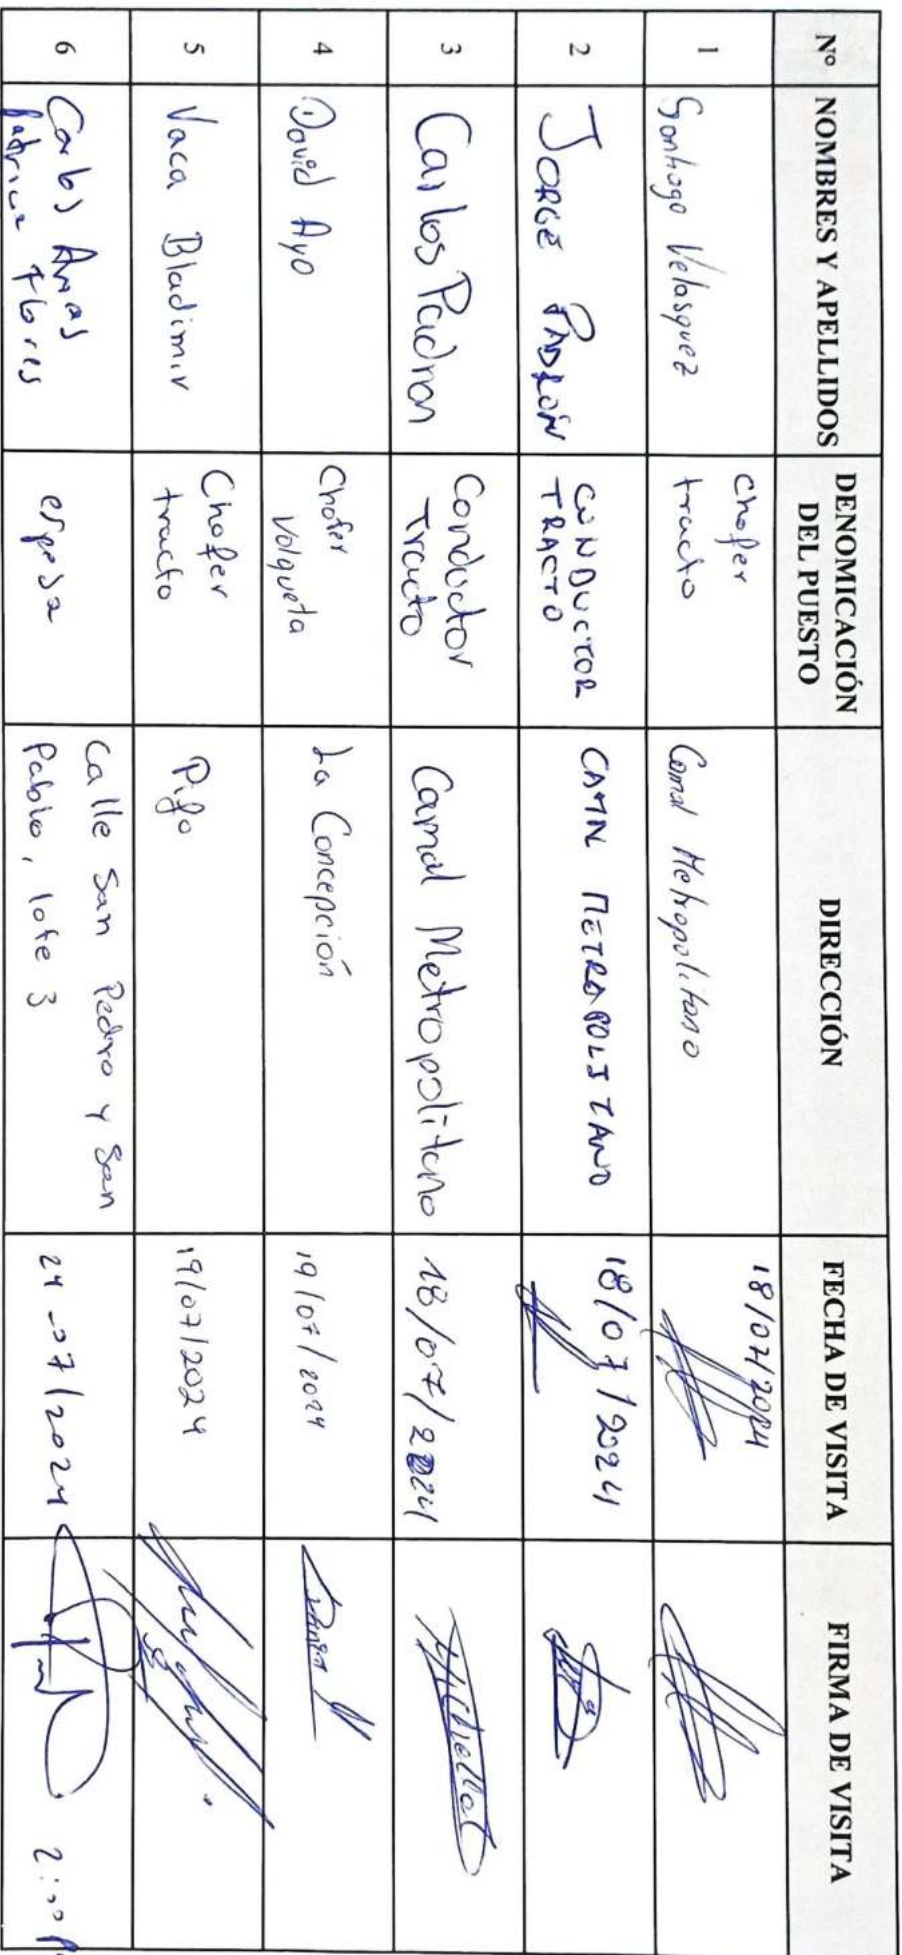 Nº NOMBRES Y APELLIDOS DENOMICACIÓN DEL PUESTO DIRECCIÓN FECHA DE VISITA FIRMA DE VISITA
1 Santiago Velasquez Chofer tracto Camal Metropolitano 18/07/2024
2 JORGE PADRÓN CONDUCTOR TRACTO METROPOLITANO 18/07/2024
3 Carlos Padron Conductor Tracto Camal Metropolitano 18/07/2024
4 David Ayo Chofer Volqueta La Concepción 19/07/2024
5 Vaca Bladimir Chofer tracto Pifo 19/07/2024
6 Carlos Arias
Flores esposa Calle San Pedro y San
Pablo, lote 3 24-07/2024 2:00